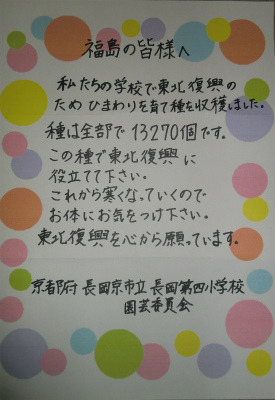 福島の皆様へ
私たちの学校で東北復興の
ためひまわりを育て種を収穫しました。
種は全部で13270個です。
この種で東北復興に
役立てて下さい。
これから寒くなっていくので
お体にお気をつけ下さい。
東北復興を心から願っています。
京都府 長岡京市立 長岡第四小学校
園芸委員会